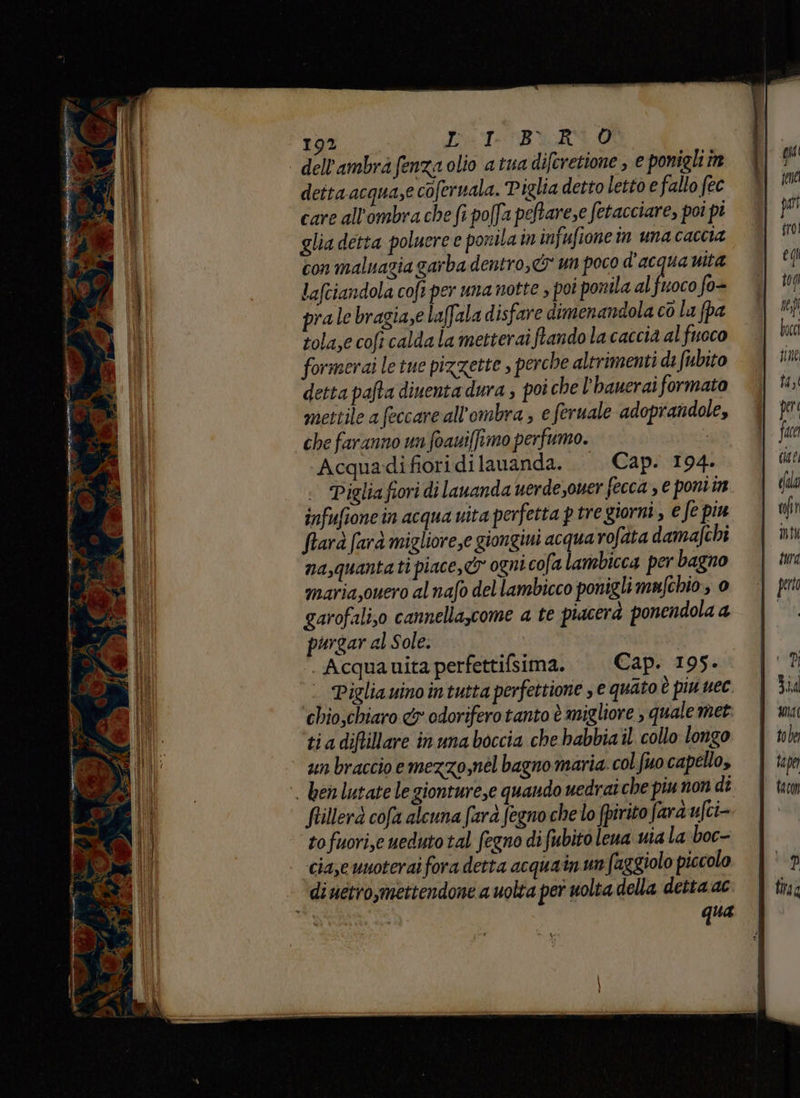 192 L I B R O
dell'ambra ſenza olio a tua diſcretione, e ponigli in
detta acqua, e cōſeruala. Piglia detto letto e fallo ſec
care all'ombra che ſi poſſa peſtare, e ſetacciare, poi pi
glia detta poluere e ponila in infuſione in una caccia
con maluagia garba dentro, & un poco d'acqua uita
laſciandola coſi per una notte, poi ponila al fuoco ſo-
pra le bragia, e laſſala disfare dimenandola cō la ſpa
tola, e coſi calda la metterai ſtando la caccia al fuoco
formerai le tue pizzette, perche altrimenti di ſubito
detta paſta diuenta dura, poi che l'hauerai formato
mettile a ſeccare all'ombra, e ſeruale adoprandole,
che faranno un ſoauiſſimo perfumo.
Acqua di fiori di lauanda. Cap. 194.
Piglia fiori di lauanda uerde, ouer ſecca, e poni in
infuſione in acqua uita perfetta p tre giorni, e ſe piu
ſtarà ſarà migliore, e giongini acqua roſata damaſchi
na, quanta ti piace, & ogni coſa lambicca per bagno
maria, ouero al naſo del lambicco ponigli muſchio, o
garofali, o cannella, come a te piacerà ponendola a
purgar al Sole.
Acqua uita perfettiſsima. Cap. 195.
Piglia uino in tutta perfettione, e quāto è piu uec
chio, chiaro & odorifero tanto è migliore, quale met
ti a diſtillare in una boccia che habbia il collo longo
un braccio e mezzo, nel bagno maria col ſuo capello,
ben lutate le gionture, e quando uedrai che piu non di
ſtillerà coſa alcuna ſarà ſegno che lo ſpirito ſarà uſci-
to fuori, e ueduto tal ſegno di ſubito leua uia la boc-
cia, e uuoterai fora detta acqua in un ſaggiolo piccolo
di uetro, mettendone a uolta per uolta della detta ac
qua